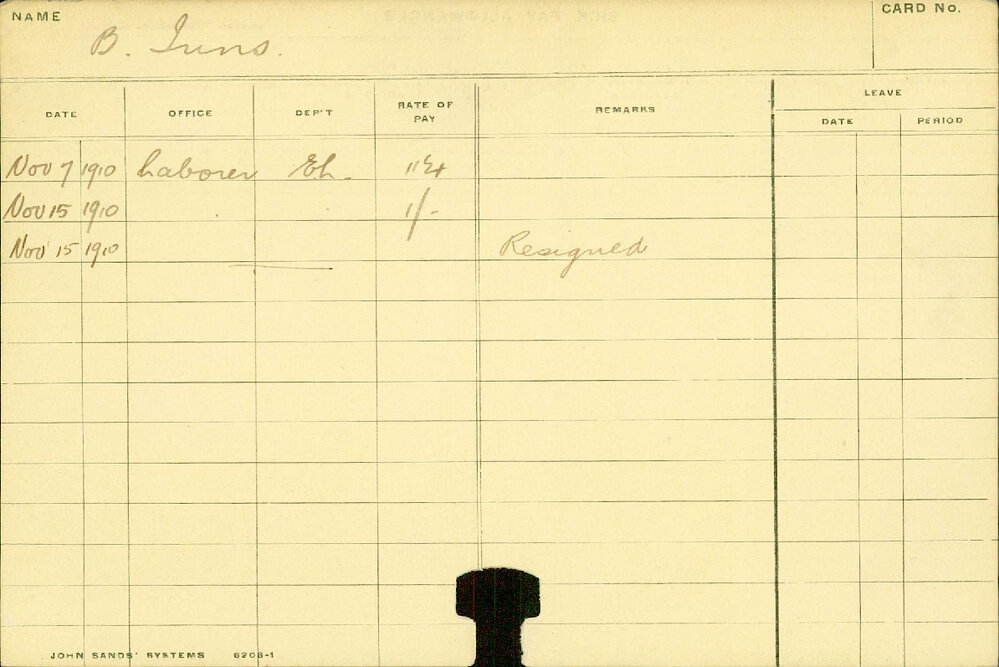 NAME
B. Iuns.
CARD No.
LEAVE
DATE OFFICE DEP'T RATE OF PAY REMARKS DATE PERIOD
Nov 7 1910 Laborer Eh.
Nov 15 1910 1/-
Nov 15 1910 Resigned
JOHN SANDS' SYSTEMS 6206-1